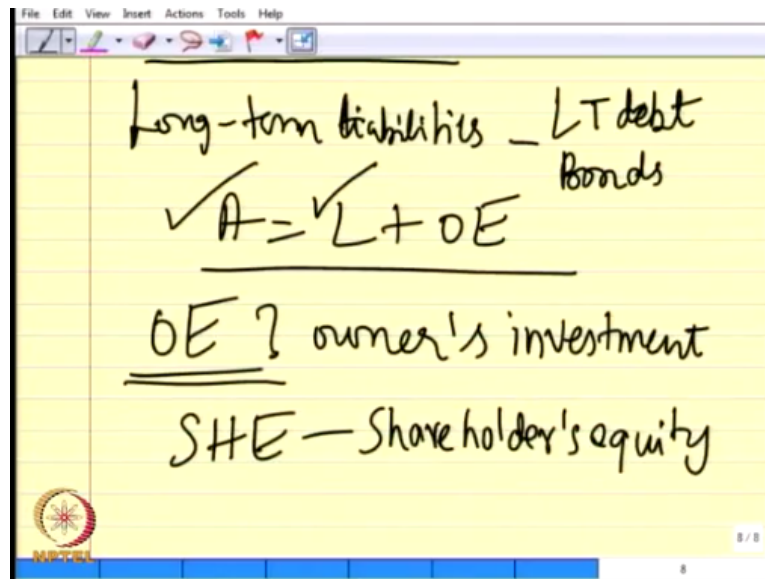 File Edit View Insert Actions Tools Help
Long-term liabilities - LT debt
Bonds
✓A = ✓L + OE
OE ? owner's investment
SHE — Shareholder's equity
NPTEL
8/8
8